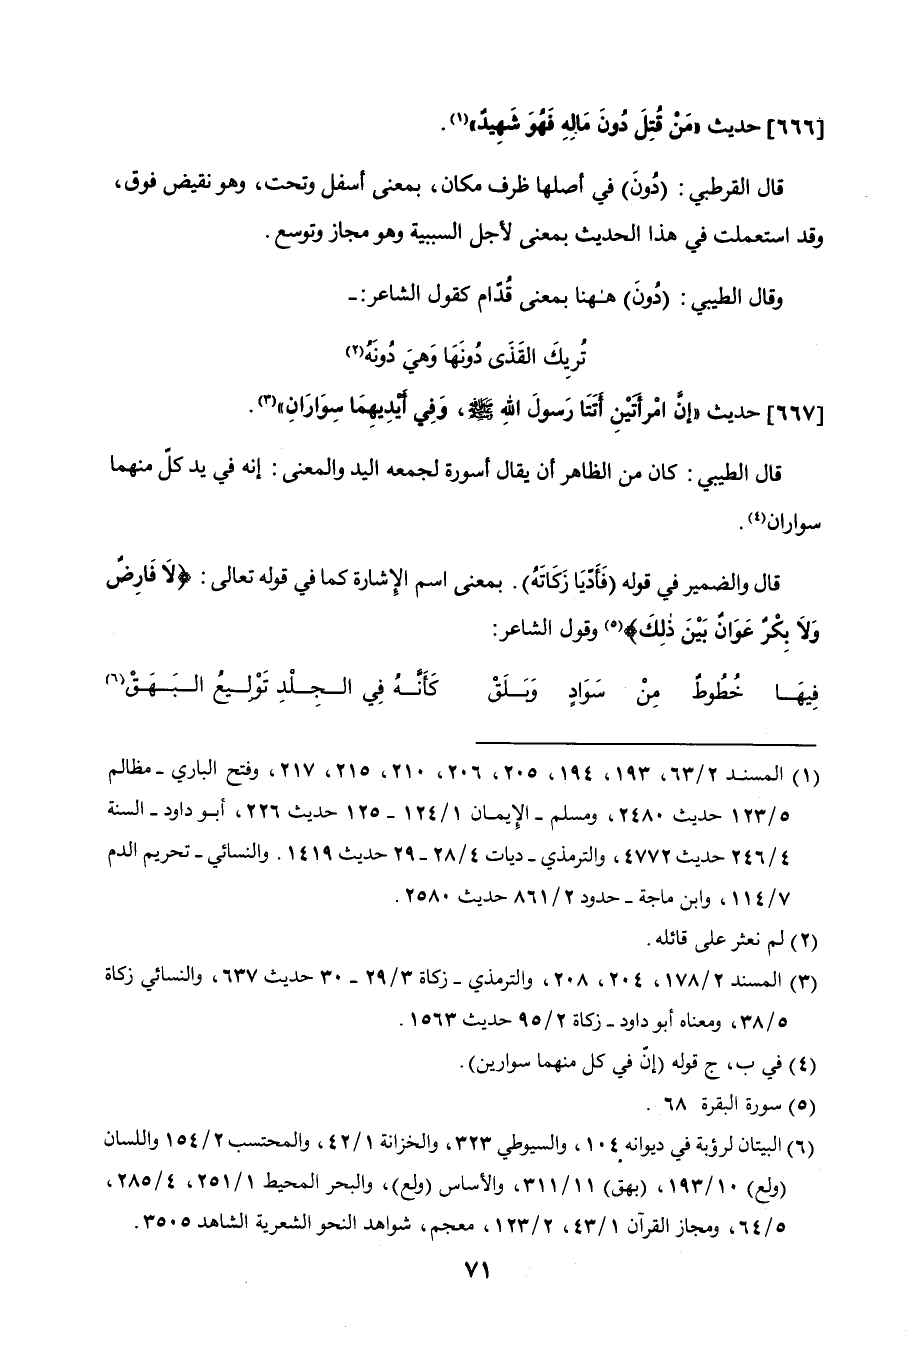 [٦٦٦] حديث «مَنْ قُتِلَ دُونَ مَالِهِ فَهُوَ شَهِيدٌ»(١).
قال القرطبي: (دُونَ) في أصلها ظرف مكان، بمعنى أسفل وتحت، وهو نقيض فوق،
وقد استعملت في هذا الحديث بمعنى لأجل السببية وهو مجاز وتوسع.
وقال الطيبي: (دُونَ) هٰهنا بمعنى قُدّام كقول الشاعر:-
تُرِيكَ القَذَى دُونَهَا وَهِيَ دُونَهُ(٢)
[٦٦٧] حديث «إنَّ امْرأَتَيْنِ أَتَتَا رَسولَ اللهِ ﷺ، وَفِي أَيْدِيهِمَا سِوَارَانِ»(٣).
قال الطيبي: كان من الظاهر أن يقال أسورة لجمعه اليد والمعنى: إنه في يد كلّ منهما
سواران(٤).
قال والضمير في قوله (فَأَدّيَا زَكَاتَهُ). بمعنى اسم الإشارة كما في قوله تعالى: ﴿لَا فَارِضٌ
وَلَا بِكْرٌ عَوَانٌ بَيْنَ ذٰلِكَ﴾(٥) وقول الشاعر:
فِيهَــا خُطُوطٌ مِنْ سَوَادٍ وَبَـلَقْ كَأَنَّــهُ فِي الـجِـلْدِ تَوْلِـيعُ الـبَـهَـقْ(٦)
(١) المسند ٦٣/٢، ١٩٣، ١٩٤، ٢٠٥، ٢٠٦، ٢١٠، ٢١٥، ٢١٧، وفتح الباري - مظالم
١٢٣/٥ حديث ٢٤٨٠، ومسلم - الإيمان ١٢٤/١ - ١٢٥ حديث ٢٢٦، أبو داود - السنة
٢٤٦/٤ حديث ٤٧٧٢، والترمذي - ديات ٢٨/٤ - ٢٩ حديث ١٤١٩. والنسائي - تحريم الدم
١١٤/٧، وابن ماجة - حدود ٨٦١/٢ حديث ٢٥٨٠.
(٢) لم نعثر على قائله.
(٣) المسند ١٧٨/٢، ٢٠٤، ٢٠٨، والترمذي - زكاة ٢٩/٣ - ٣٠ حديث ٦٣٧، والنسائي زكاة
٣٨/٥، ومعناه أبو داود - زكاة ٩٥/٢ حديث ١٥٦٣.
(٤) في ب، ج قوله (إنّ في كل منهما سوارين).
(٥) سورة البقرة ٦٨ .
(٦) البيتان لرؤبة في ديوانه ١٠٤، والسيوطي ٣٢٣، والخزانة ٤٢/١، والمحتسب ١٥٤/٢ واللسان
(ولع) ١٩٣/١٠، (بهق) ٣١١/١١، والأساس (ولع)، والبحر المحيط ٢٥١/١، ٢٨٥/٤،
٦٤/٥، ومجاز القرآن ٤٣/١، ١٢٣/٢، معجم، شواهد النحو الشعرية الشاهد ٣٥٠٥.
٧١